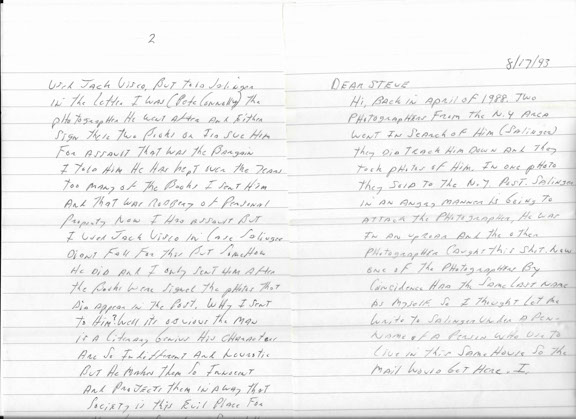 8/17/93
DEAR STEVE
Hi, Back in April of 1988. Two
Photographers From the N.Y Area
Went In Search of Him (Salinger)
they Did Track Him Down And they
took photos of Him. In one photo
they Sold to the N.Y. Post. Salinger
in An Angry MANNER Is Going to
Attack the Photographer, He was
In An uproar And the other
Photographer Caught this Shot. Now
one of the Photographers By
Coincidence Had the Same Last Name
As Myself So I thought Let Me
Write to Salinger Under A Pen-
Name of A Person Who Use to
Live in this Same House So the
Mail Would Get Here. I
2
Used Jack Visco, But told Salinger
in the Letter I was (Pete Connelly) the
photographer He Went After And Either
Sign these two Books or I'm Sue Him
For Assault That was the Bargain
I told Him He Has Kept over the Years
too many of the Books I Sent Him
And that was Robbery of Personal
Property Now I Had Assault But
I Used Jack Visco In Case Salinger
Didn't Fall For this But Somehow
He Did And I only Sent Him After
the Books Were Signed the photos that
Did Appear in the Post. Why I Sent
to Him? Well its obvious the Man
is A Literary Genius His Characters
Are So Indifferent And Neurotic
But He Makes them So Innocent
And Projects them in A way that
Society is this Evil Place For